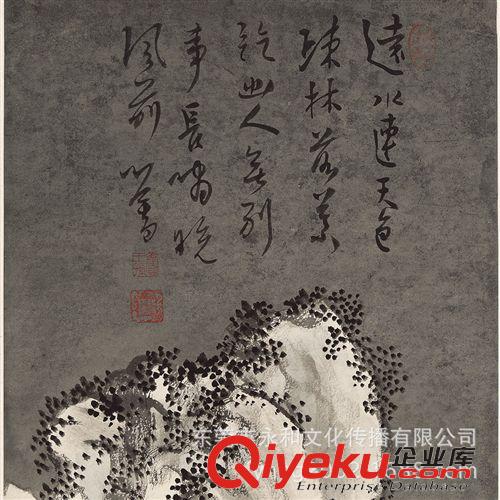 遠水連天色
疎林落葉
幽人無別
事長嘯晚
風前 心畬
东莞市永和文化传播有限公司
Qiyeku.com 企业库
Enterprise Database